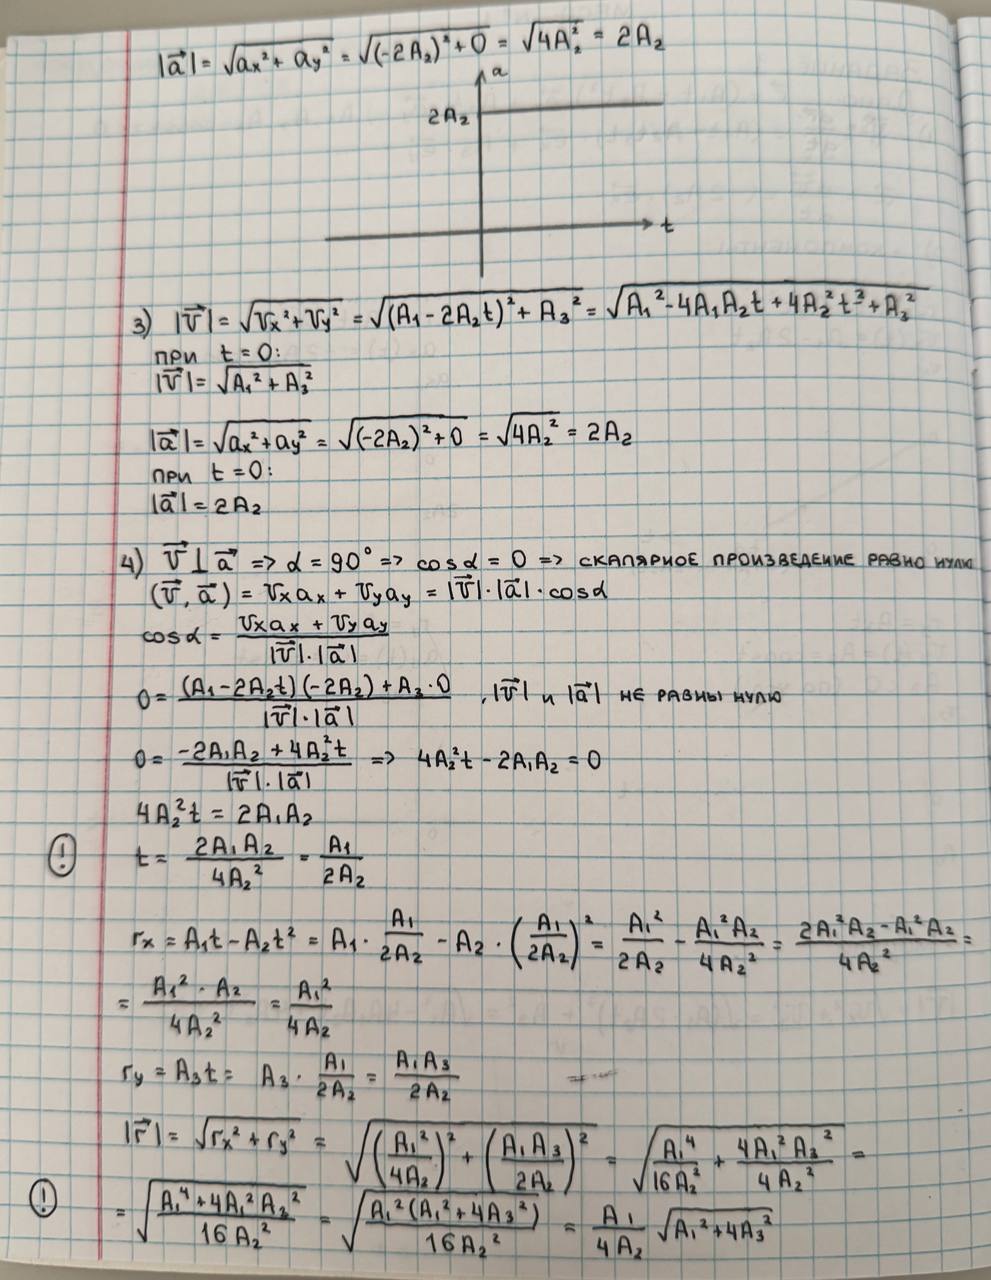 |a⃗| = √(aₓ² + a_y²) = √((-2A₂)² + 0) = √(4A₂²) = 2A₂
a
2A₂
t
3) |V⃗| = √(Vₓ² + V_y²) = √((A₁ - 2A₂t)² + A₃²) = √(A₁² - 4A₁A₂t + 4A₂²t² + A₃²)
при t = 0:
|V⃗| = √(A₁² + A₃²)
|a⃗| = √(aₓ² + a_y²) = √((-2A₂)² + 0) = √(4A₂²) = 2A₂
при t = 0:
|a⃗| = 2A₂
4) V⃗ ⊥ a⃗ => α = 90° => cosα = 0 => скалярное произведение равно нулю
(V⃗, a⃗) = Vₓaₓ + V_ya_y = |V⃗|·|a⃗|·cosα
cosα = (Vₓaₓ + V_ya_y)/(|V⃗|·|a⃗|)
0 = ((A₁ - 2A₂t)(-2A₂) + A₃·0)/(|V⃗|·|a⃗|) , |V⃗| и |a⃗| не равны нулю
0 = (-2A₁A₂ + 4A₂²t)/(|V⃗|·|a⃗|) => 4A₂²t - 2A₁A₂ = 0
4A₂²t = 2A₁A₂
! t = 2A₁A₂/4A₂² = A₁/2A₂
rₓ = A₁t - A₂t² = A₁ · A₁/2A₂ - A₂ · (A₁/2A₂)² = A₁²/2A₂ - A₁²A₂/4A₂² = (2A₁²A₂ - A₁²A₂)/4A₂² =
= A₁²·A₂/4A₂² = A₁²/4A₂
r_y = A₃t = A₃ · A₁/2A₂ = A₁A₃/2A₂
|r⃗| = √(rₓ² + r_y²) = √((A₁²/4A₂)² + (A₁A₃/2A₂)²) = √(A₁⁴/16A₂² + 4A₁²A₃²/4A₂²) =
! = √((A₁⁴ + 4A₁²A₃²)/16A₂²) = √(A₁²(A₁² + 4A₃²)/16A₂²) = A₁/4A₂ √(A₁² + 4A₃²)